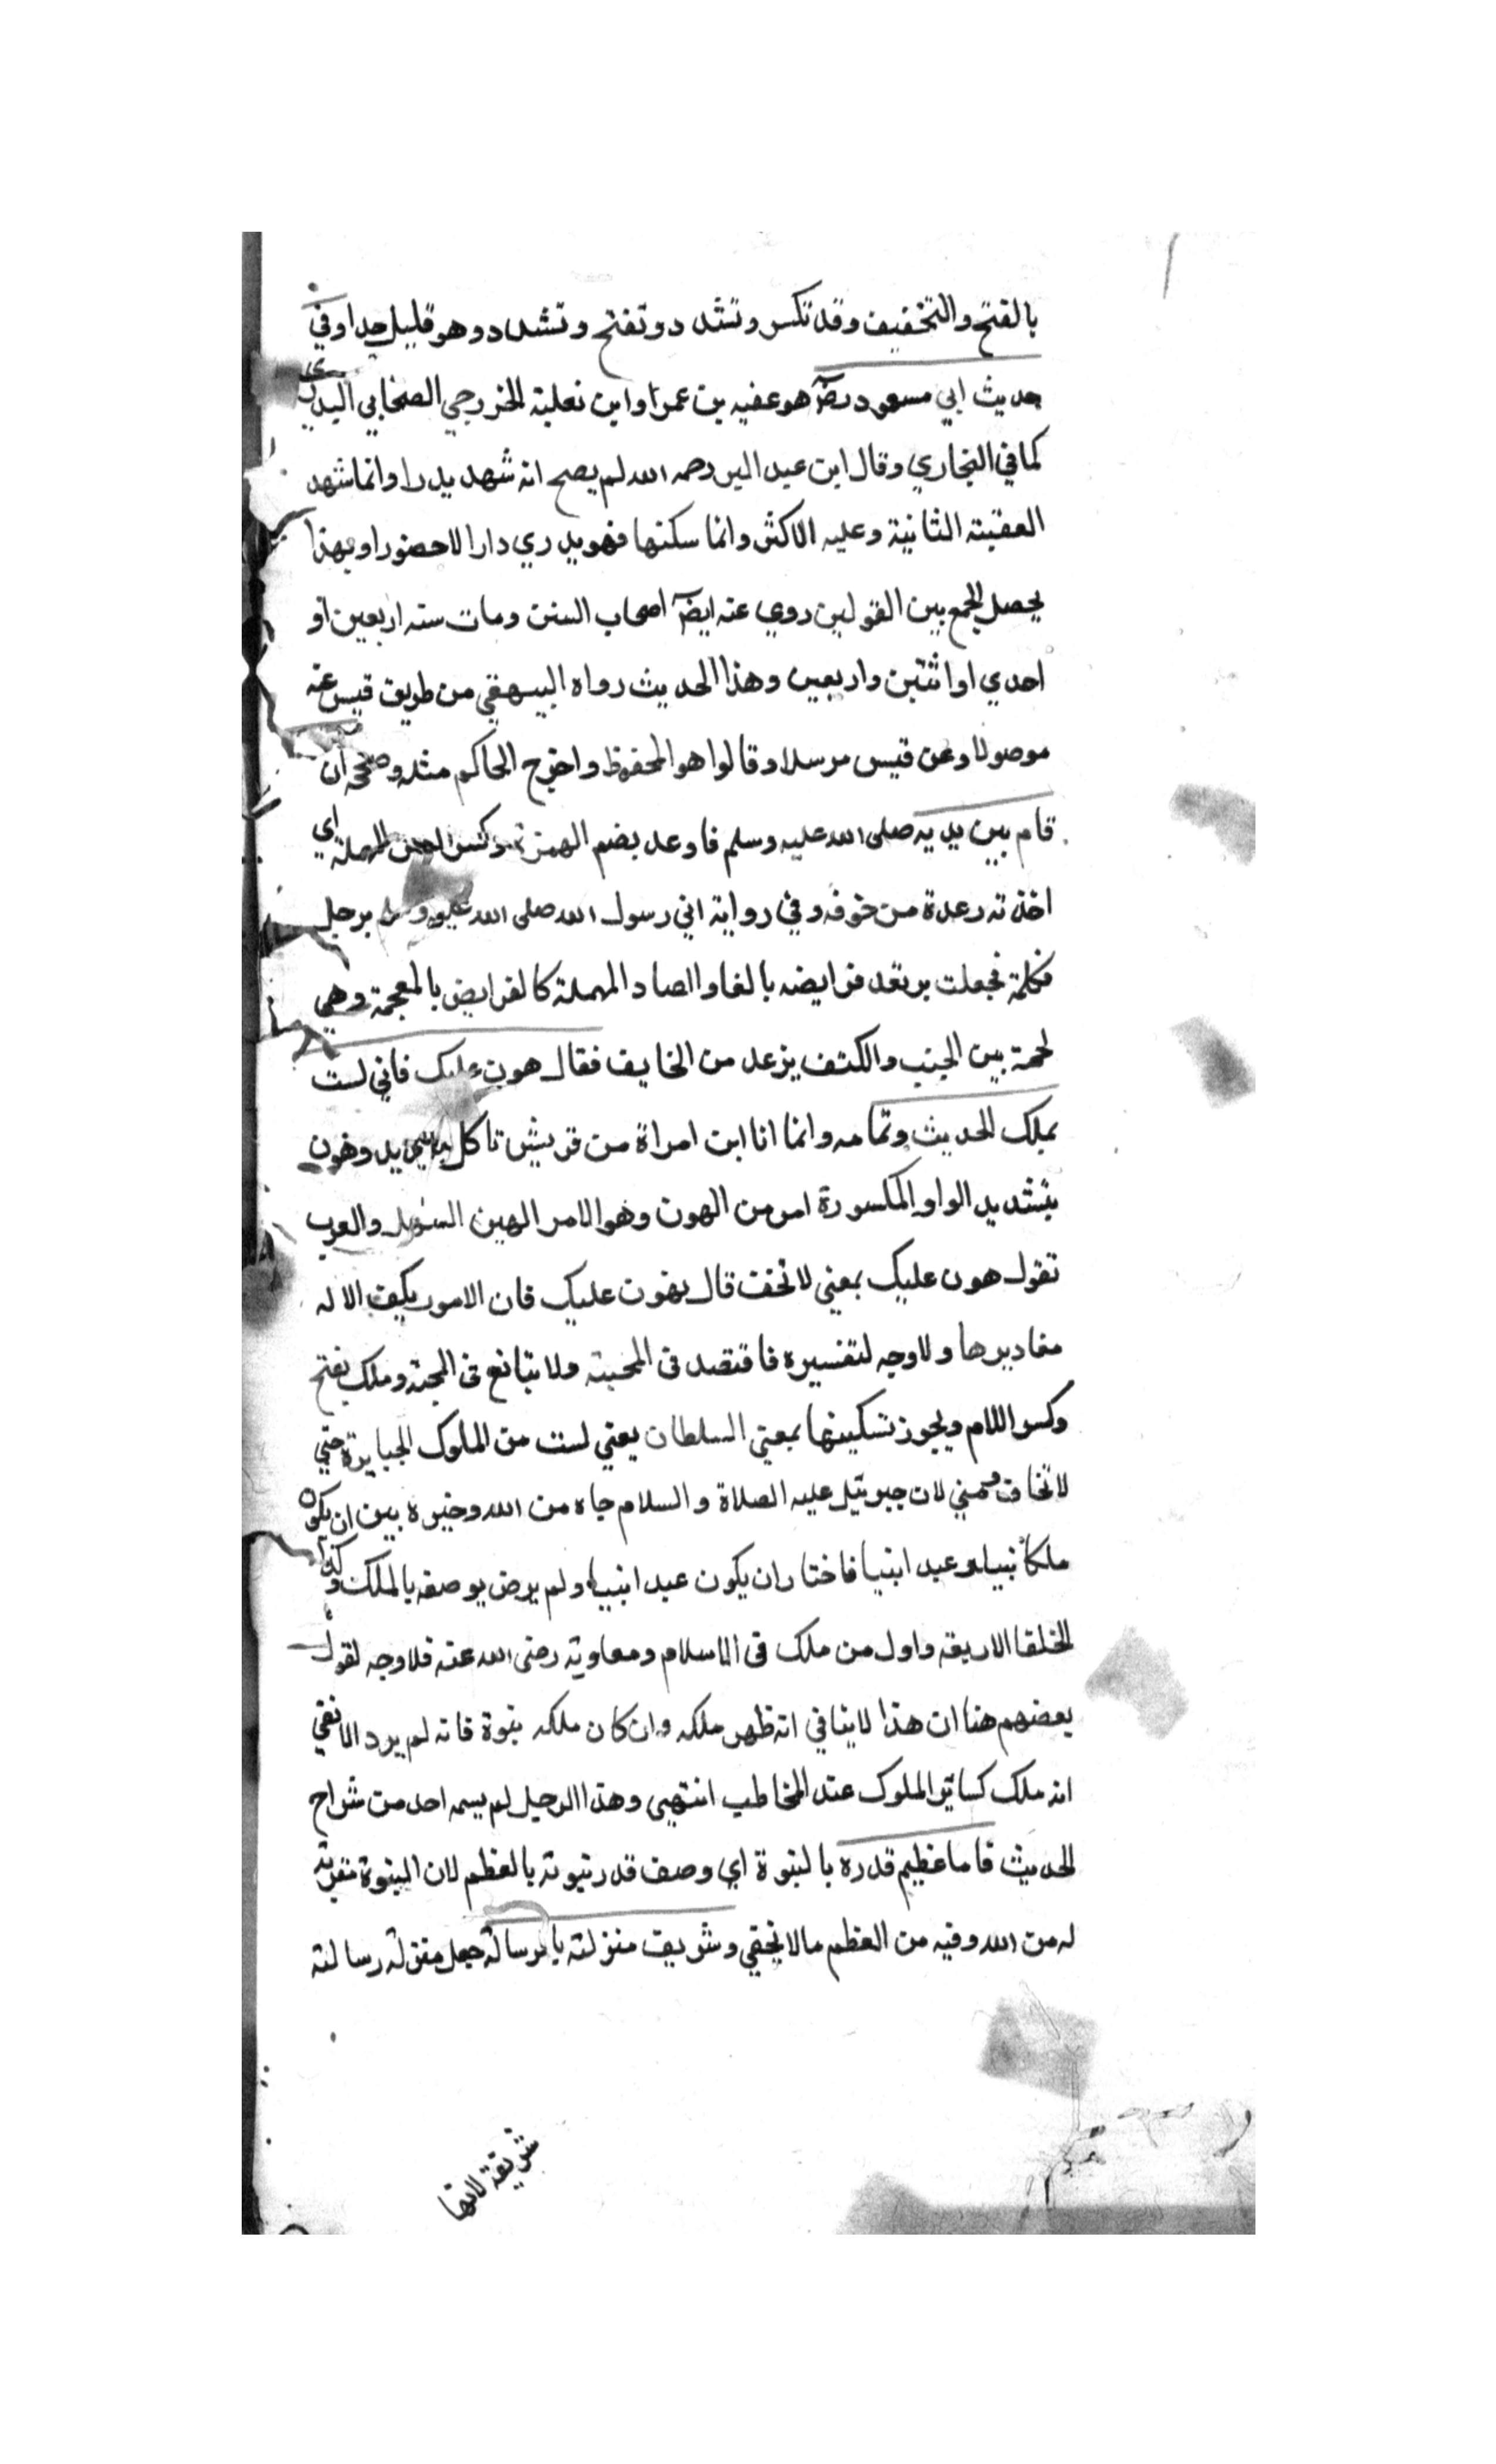 بالفتح والتخفيف وقد تكسر وتشد دوتفتح وتشدد وهو قليل جدا وفي
حديث ابي مسعود رضۤ هو عقبه بن عمرا وابن تعلبة الخزرجي الصخابي البدري
كما في البخاري وقال ابن عبد البر رحمه الله لم يصح انه شهد بدرا وانما شهد
العقبته الثانية وعليه الاكثر وانما سكنها فهو بدري دارا لاحضورا وبهذا
يحصل الجمع بين القولين روي عنه ايضۤ اصحاب السنن ومات سنه اربعين او
احدي او اثنتين واربعين وهذا الحديث رواه البيهقي من طريق قيس عنه
موصولا وعن قيس مرسلا وقالوا هو المحفوظ واخرج الحاكم مثله وصححه ان
قام بين يديه صلى الله عليه وسلم فاوعد بضم الهمزة وكسر العين المهملة اي
اخذته رعدة من خوفه وفي رواية اني رسول الله صلى الله عليه وسلم برجل
فكلمة فجعلت برتعد فرايضه بالفا والصاد المهملة كالفرايض بالمعجمة وهي
لحمة بين الجنب والكتف يزعد من الخايف فقال هون عليك فاني لست
بملك الحديث وتمامه وانما انا ابن امراة من قريش تاكل وهون
بتشديد الواو المكسورة امر من الهون وهو الامر الهين السهل والعرب
تقول هون عليك بمعني لا تخف قال بهون عليك فان الامور بكف الاله
مقاديرها ولا وجه لتفسيره فاقتصد فى المحبته ولا تبالغ في المحبة وملك بفتح
وكسر اللام ويجوز تسكينها بمعني السلطان يعني لست من الملوك الجبابرة حتي
لا تخاف مني لان جبرئيل عليه الصلاة والسلام جاه من الله وخيره بين ان يكون
ملكا نبيا او عبد انبيا فاختار ان يكون عبد انبيا ولم يرض بوصفه بالملك وكذا
الخلفا الاربعة واول من ملك فى الاسلام ومعاوية رضى الله عنه فلا وجه لقول
بعضهم هنا ان هذا لا ينافي انه ظهر ملكه وان كان ملكه بنوة فانه لم يرد الا نفي
انه ملك كسائر الملوك عند المخاطب انتهي وهذا الرجل لم يسمه احد من شراح
الحديث فاما عظيم قدره بالنبوة اي وصف قدر نبوته بالعظم لان النبوة مقربة
له من الله وفيه من العظم مالا يخفي وشريف منزلته بالرسالة جعل منزلة رسالته
شريفة لانها